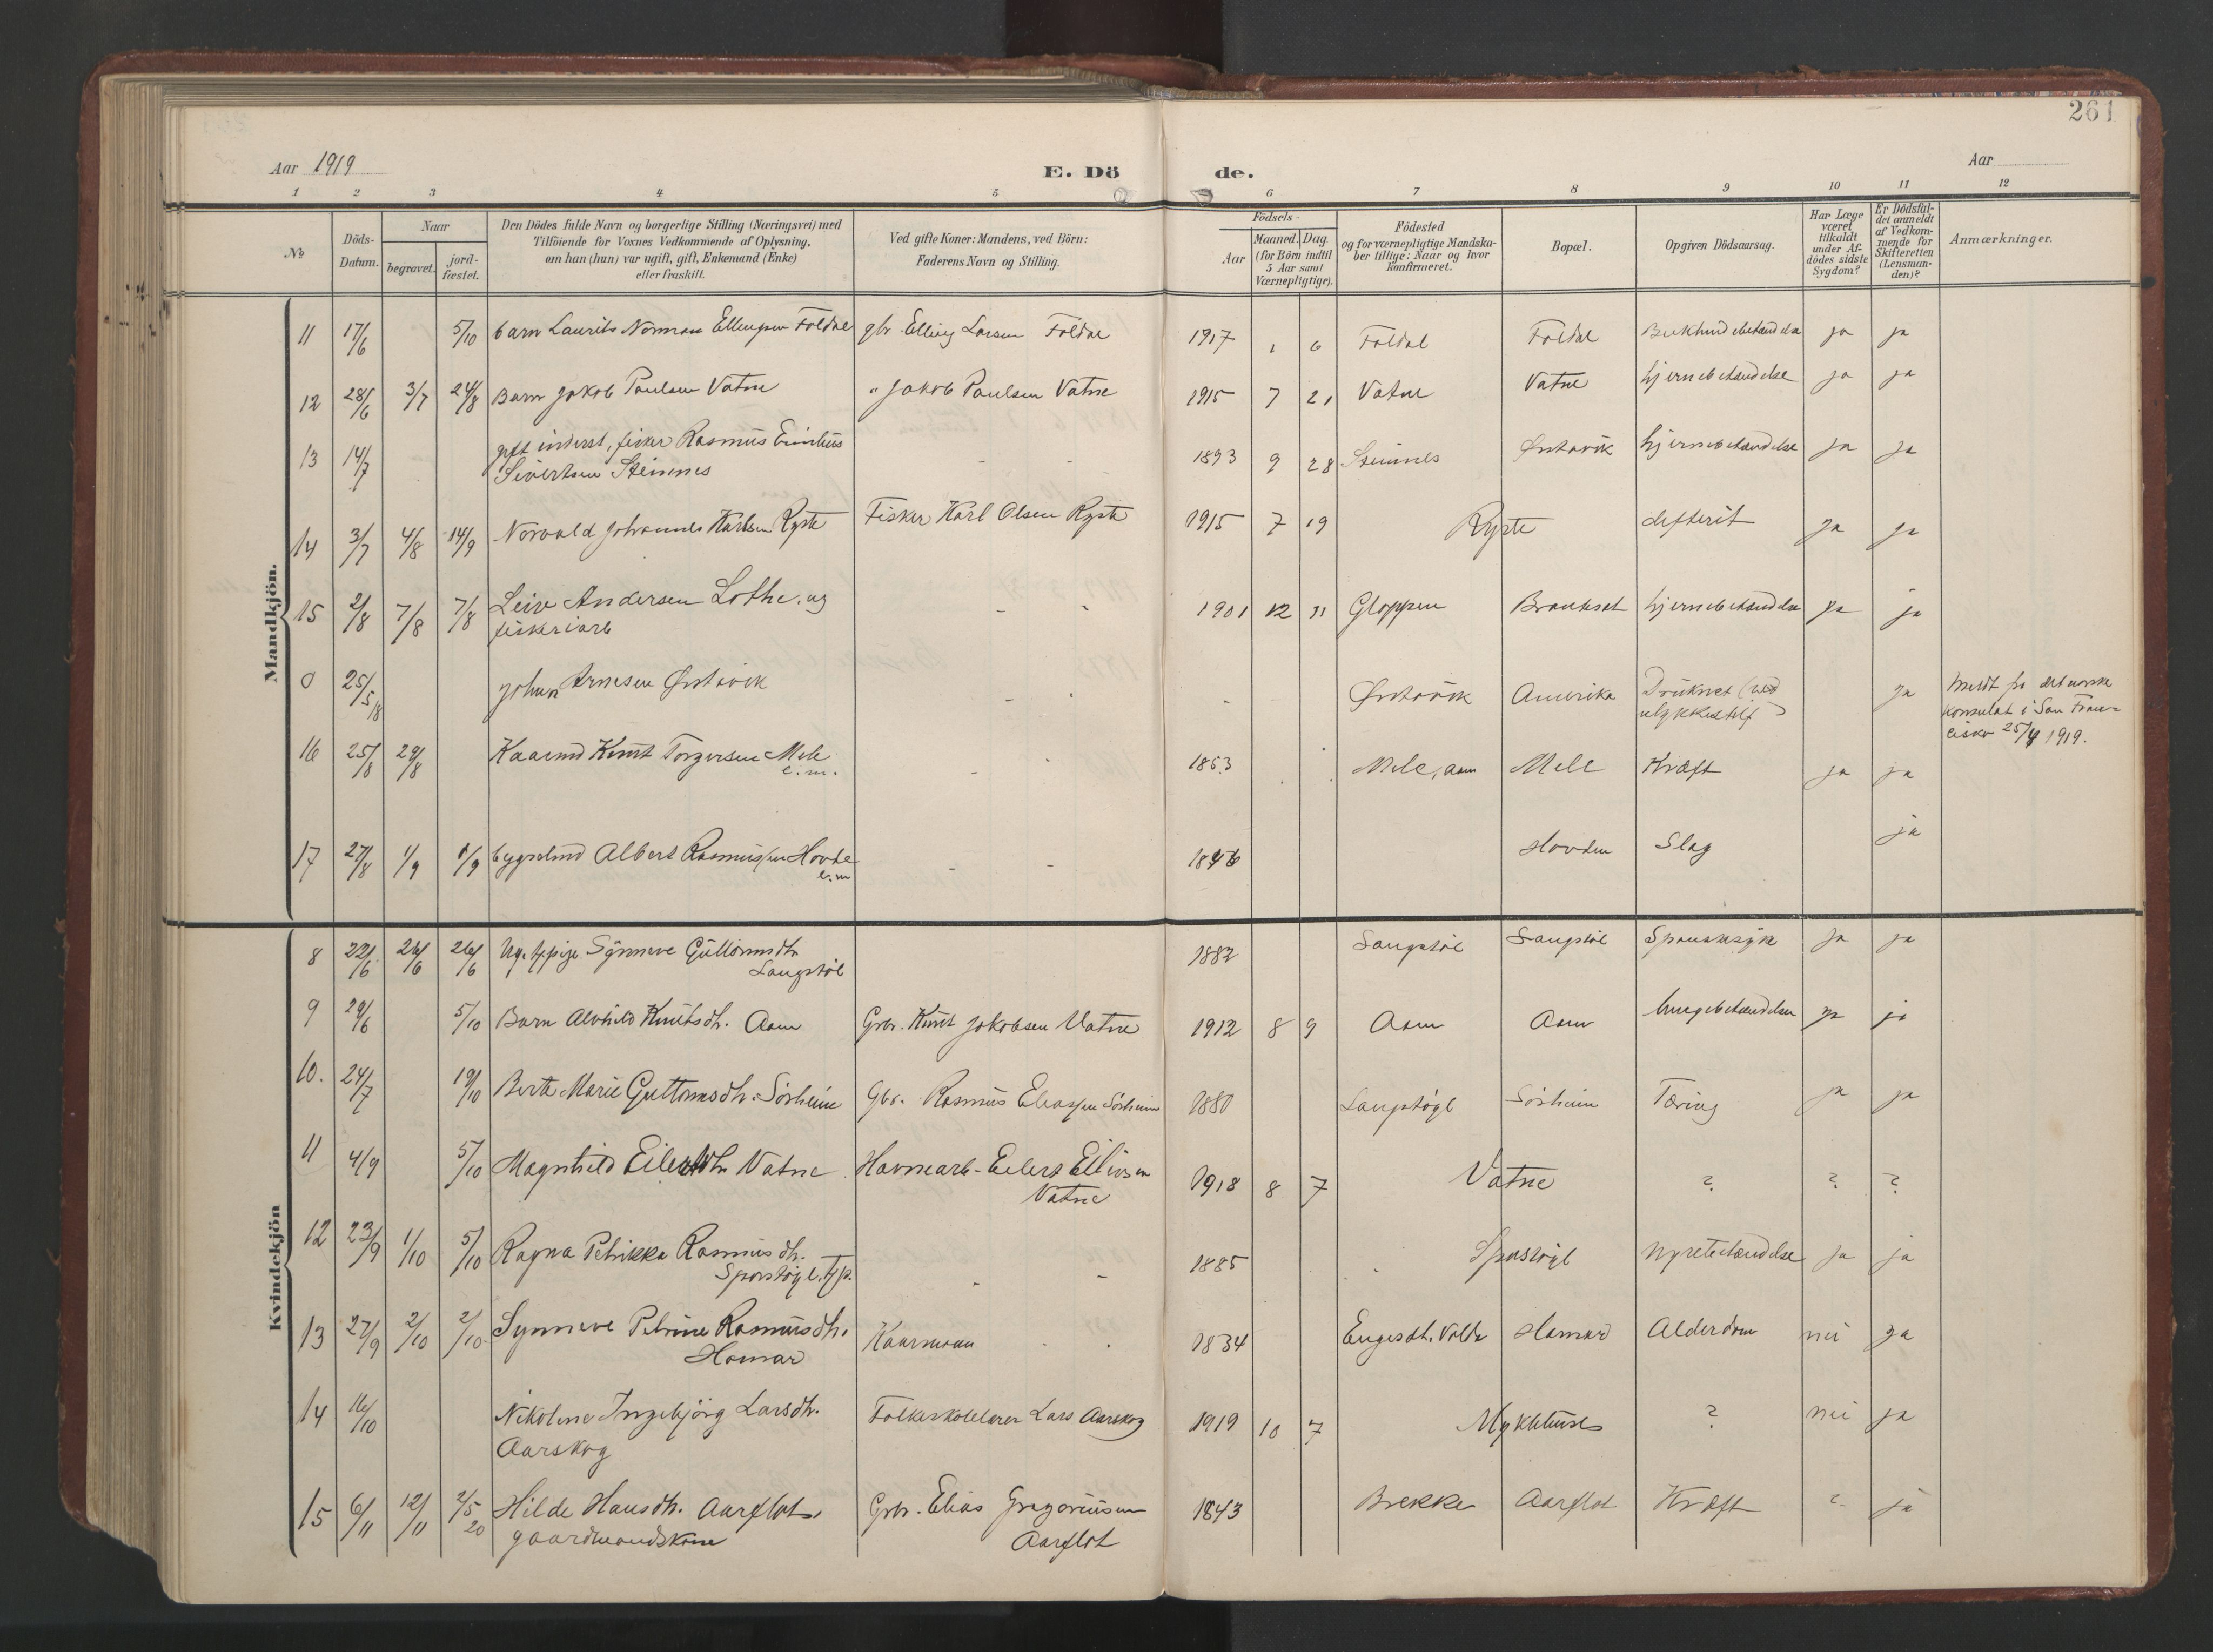 261
Aar 1919
E. Dö de.
Aar
1 2 3 4 5 6 7 8 9 10 11 12
№
Döds-
Datum.
Naar
begravet.
jord-
fæstet.
Den Dödes fulde Navn og borgerlige Stilling (Næringsvei) med
Tilföiende for Voxnes Vedkommende af Oplysning,
om han (hun) var ugift, gift, Enkemand (Enke)
eller fraskilt.
Ved gifte Koner: Mandens, ved Börn:
Faderens Navn og Stilling.
Födsels-
Aar
Maaned. Dag.
(for Börn indtil
5 Aar samt
Værnepligtige).
Födested
og for værnepligtige Mandska-
ber tillige: Naar og hvor
konfirmeret.
Bopæl.
Opgiven Dödsaarsag.
Har Læge
været
tilkaldt
under Af-
dödes sidste
Sygdom?
Er Dödsfal-
det anmeldt
af Vedkom-
mende for
Skifteretten
(Lensman-
den)?
Anmærkninger.
Mandkjön.
11 17/6 5/10 barn Laurits Norman Ellingsen Foldal gbr. Elling Larsen Foldal 1917 1 6 Foldal Foldal ja ja
12 28/6 3/7 24/8 Barn Jakob Paulsen Vatne " Jakob Paulsen Vatne 1915 7 21 Vatne Vatne hjernebetændelse ja ja
13 14/7 gift inderst, fisker Rasmus
Sivertsen Steinnes - - 1893 9 28 Steinnes Ørstavik hjernebetændelse ja ja
14 3/7 4/8 14/9 Norvald Johannes Karlsen Ryste Fisker Karl Olsen Ryste 1915 7 19 Ryste difterit ja ja
15 2/8 7/8 7/8 Leiv Andersen Lothe, ug
fiskeriarb - - 1901 12 11 Gloppen hjernebetændelse ja ja
0 25/5 18 Johan Arnesen Ørstavik - - - Ørstavik Amerika Druknet (ved
ulykkestilf) ja meldt fra det norske
konsulat i San Fran-
cisko 25/4 1919.
16 25/8 29/8 Kaarmd Knut Torgersen Mele
e.m. - - 1853 Mele, Aam Mele Kræft ja ja
17 27/8 1/9 1/9 bygselmd Albert Rasmussen Hovde
e.m - 1846 Hovden Slag ja
Kvindekjön
8 22/6 26/6 26/6 Ug. tj.pige Synneve Guttormsdtr
Langstöl 1882 Langstöl Langstöl Spansksyke ja ja
9 29/6 5/10 Barn Alvhild Knutsdtr. Aam Grbr. Knut Jakobsen Vatne 1912 8 9 Aam Aam lungebetændelse ja ja
10. 24/7 19/10 Berte Marie Guttormsdtr. Sörheim Gbr. Rasmus Eliassen Sörheim 1880 Langstöyl Sörheim Tæring ja ja
11 4/9 5/10 Magnhild Eilertsdtr Vatne Havnearb. Eilert Eilivsen
Vatne 1918 8 7 Vatne ? ? ?
12 23/9 1/10 5/10 Ragna Petrikka Rasmusdtr.
Sporstöyl. tjp. - - 1885 Sporstöyl Nyrebetændelse ja ja
13 27/9 2/10 2/10 Synneve Petrine Rasmusdtr.
Hamar Kaarmann 1834 Engeset. Volda Hamar Alderdom nei ja
14 16/10 Nikoline Ingebjörg Larsdtr.
Aarskog Folkeskolelærer Lars Aarskog 1919 10 7 Mykletun ? nei ja
15 6/11 12/11 2/5 20 Hilde Hansdtr. Aarflot,
gaardmandskone Grbr. Elias Gregoriussen
Aarflot 1843 Brekke Aarflot Kræft ? ja